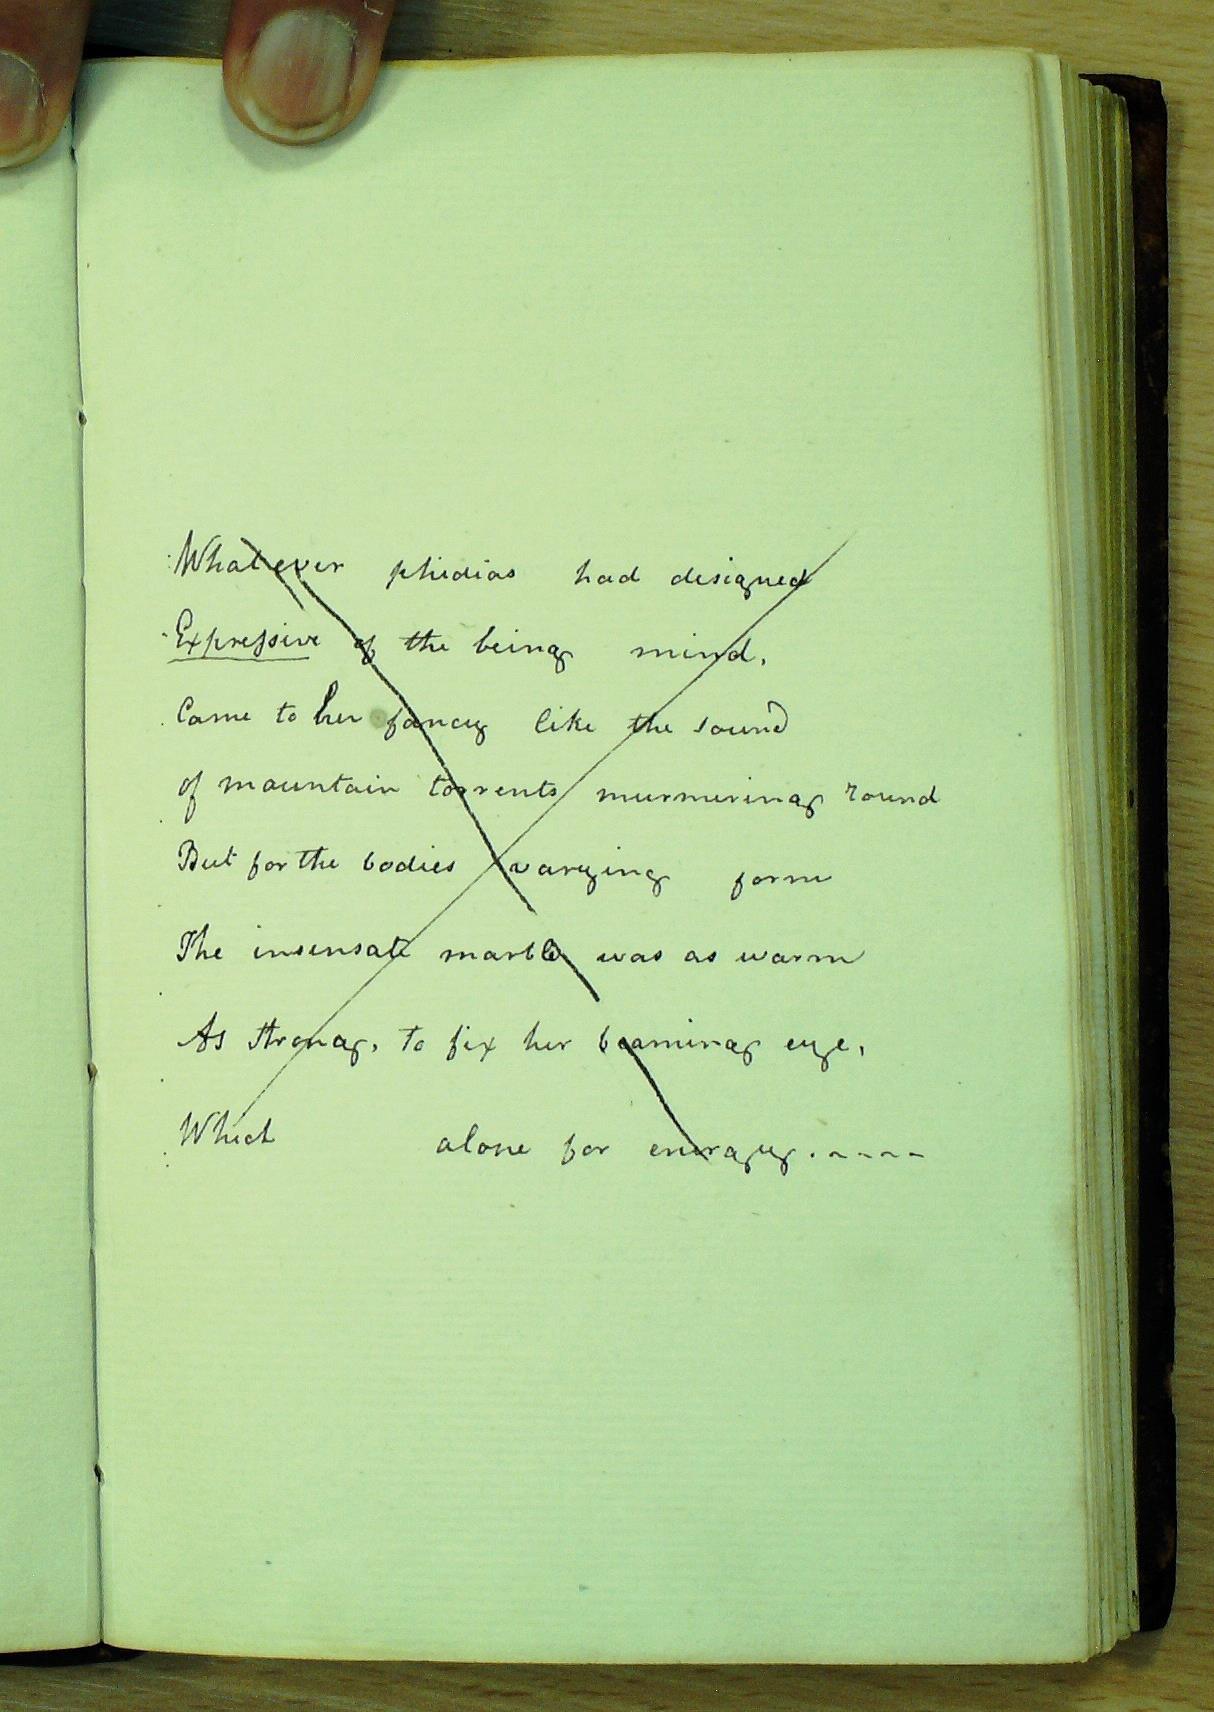 Whatever phidias had designed
Expressive of the being mind,
Came to her fancy like the sound
of mountain torrents murmuring round
But for the bodies varying form
The insensate marble was as warm
As strong, to fix her beaming eye,
Which alone for energy.----